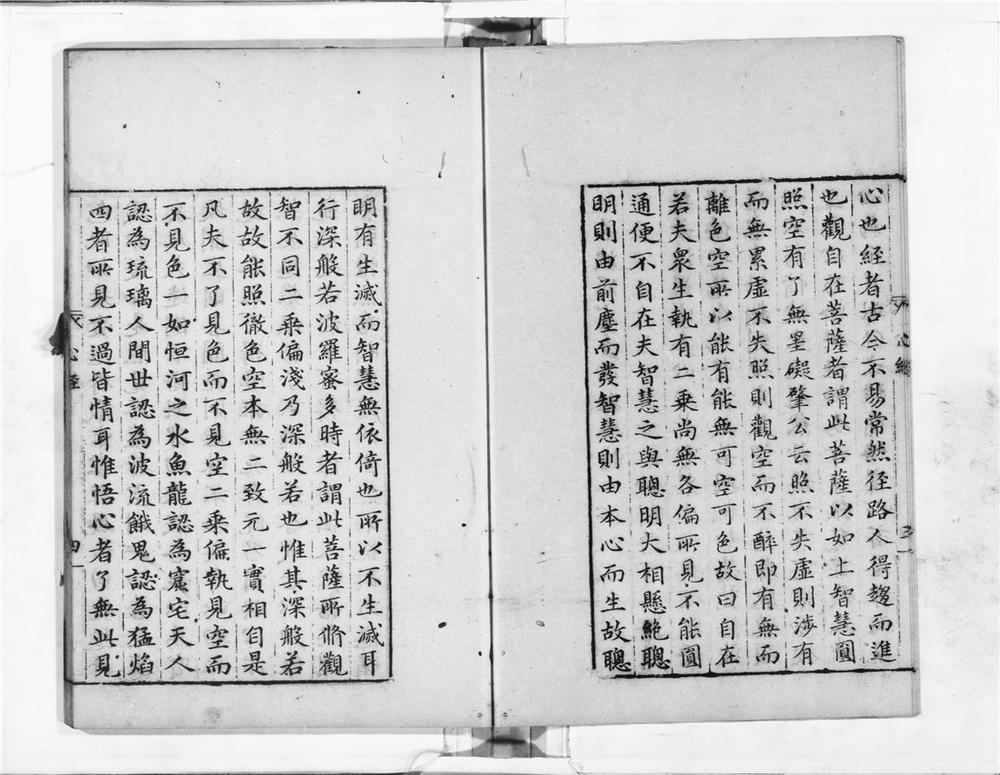 心也経者古今不易常然径路人得趍而進
也觀自在菩薩者謂此菩薩以如上智慧圓
照空有了無罣礙肇公云照不失虛則涉有
而無累虛不失照則觀空而不醉即有無而
離色空所以能有能無可空可色故曰自在
若夫衆生執有二乗尚無各偏所見不能圓
通便不自在夫智慧之與聰明大相懸絶聰
明則由前塵而發智慧則由本心而生故聰
心經
三
明有生滅而智慧無依倚也所以不生滅耳
行深般若波羅蜜多時者謂此菩薩所脩觀
智不同二乗偏淺乃深般若也惟其深般若
故故能照徹色空本無二致元一實相自是
凡夫不了見色而不見空二乗偏執見空而
不見色一如恒河之水魚龍認為窟宅天人
認為琉璃人間世認為波流餓鬼認為猛焰
四者所見不過皆情耳惟悟心者了無此見
心経
四